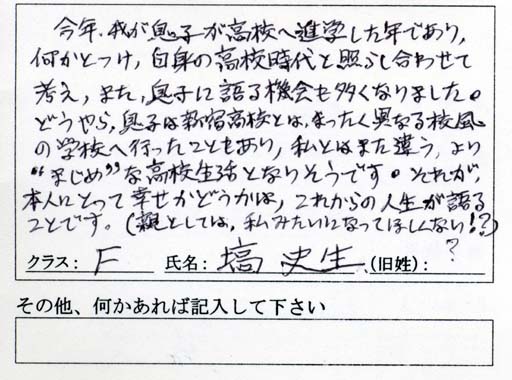 今年、我が息子が高校へ進学した年であり,
何かとつけ,自身の高校時代と照らし合わせて
考え,また,息子に語る機会も多くなりました。
どうやら,息子は新宿高校とは,まったく異なる校風
の学校へ行ったこともあり,私とはまた違う,より
“まじめ”な高校生活となりそうです。それが,
本人にとって幸せかどうかは,これからの人生が語る
ことです。(親としては,私みたいになってほしくない!?)
クラス: F 氏名: 塙 史生 (旧姓): ?
その他、何かあれば記入して下さい